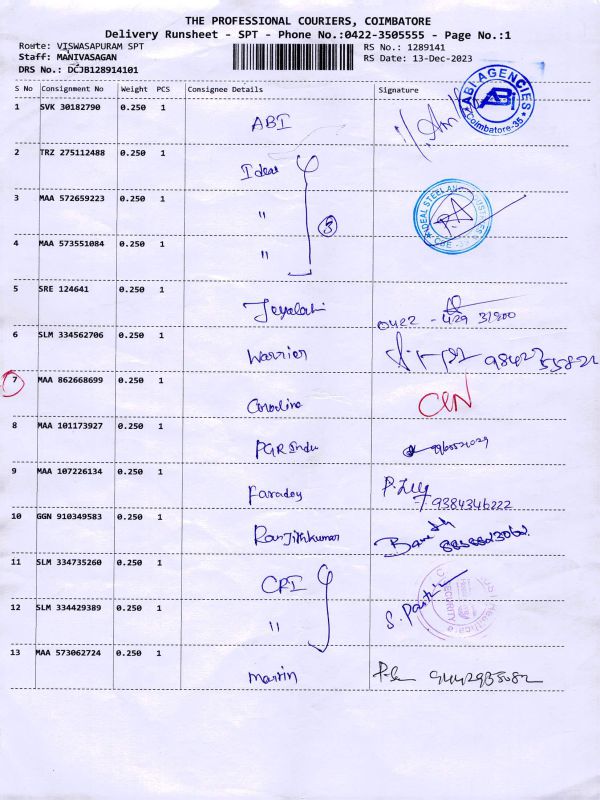 THE PROFESSIONAL COURIERS, COIMBATORE
Delivery Runsheet - SPT - Phone No.:0422-3505555 - Page No.:1
Route: VISWASAPURAM SPT RS No.: 1289141
Staff: MANIVASAGAN RS Date: 13-Dec-2023
DRS No.: DCJB128914101
S No Consignment No Weight PCS Consignee Details Signature
1 SVK 30182790 0.250 1 ABI
ABI AGENCIES
ABi
Coimbatore-35
2 TRZ 275112488 0.250 1 Ideal
3 MAA 572659223 0.250 1 "
3
4 MAA 573551084 0.250 1 "
5 SRE 124641 0.250 1
0422 - 429 31800
6 SLM 334562706 0.250 1 Warrior
7 MAA 862668699 0.250 1
8 MAA 101173927 0.250 1 PGR Indu
9 MAA 107226134 0.250 1 Faraday
9384346222
10 GGN 910349583 0.250 1 Ranjithkumar
11 SLM 334735260 0.250 1 CRI
12 SLM 334429389 0.250 1 "
SECURITY
13 MAA 573062724 0.250 1 Martin